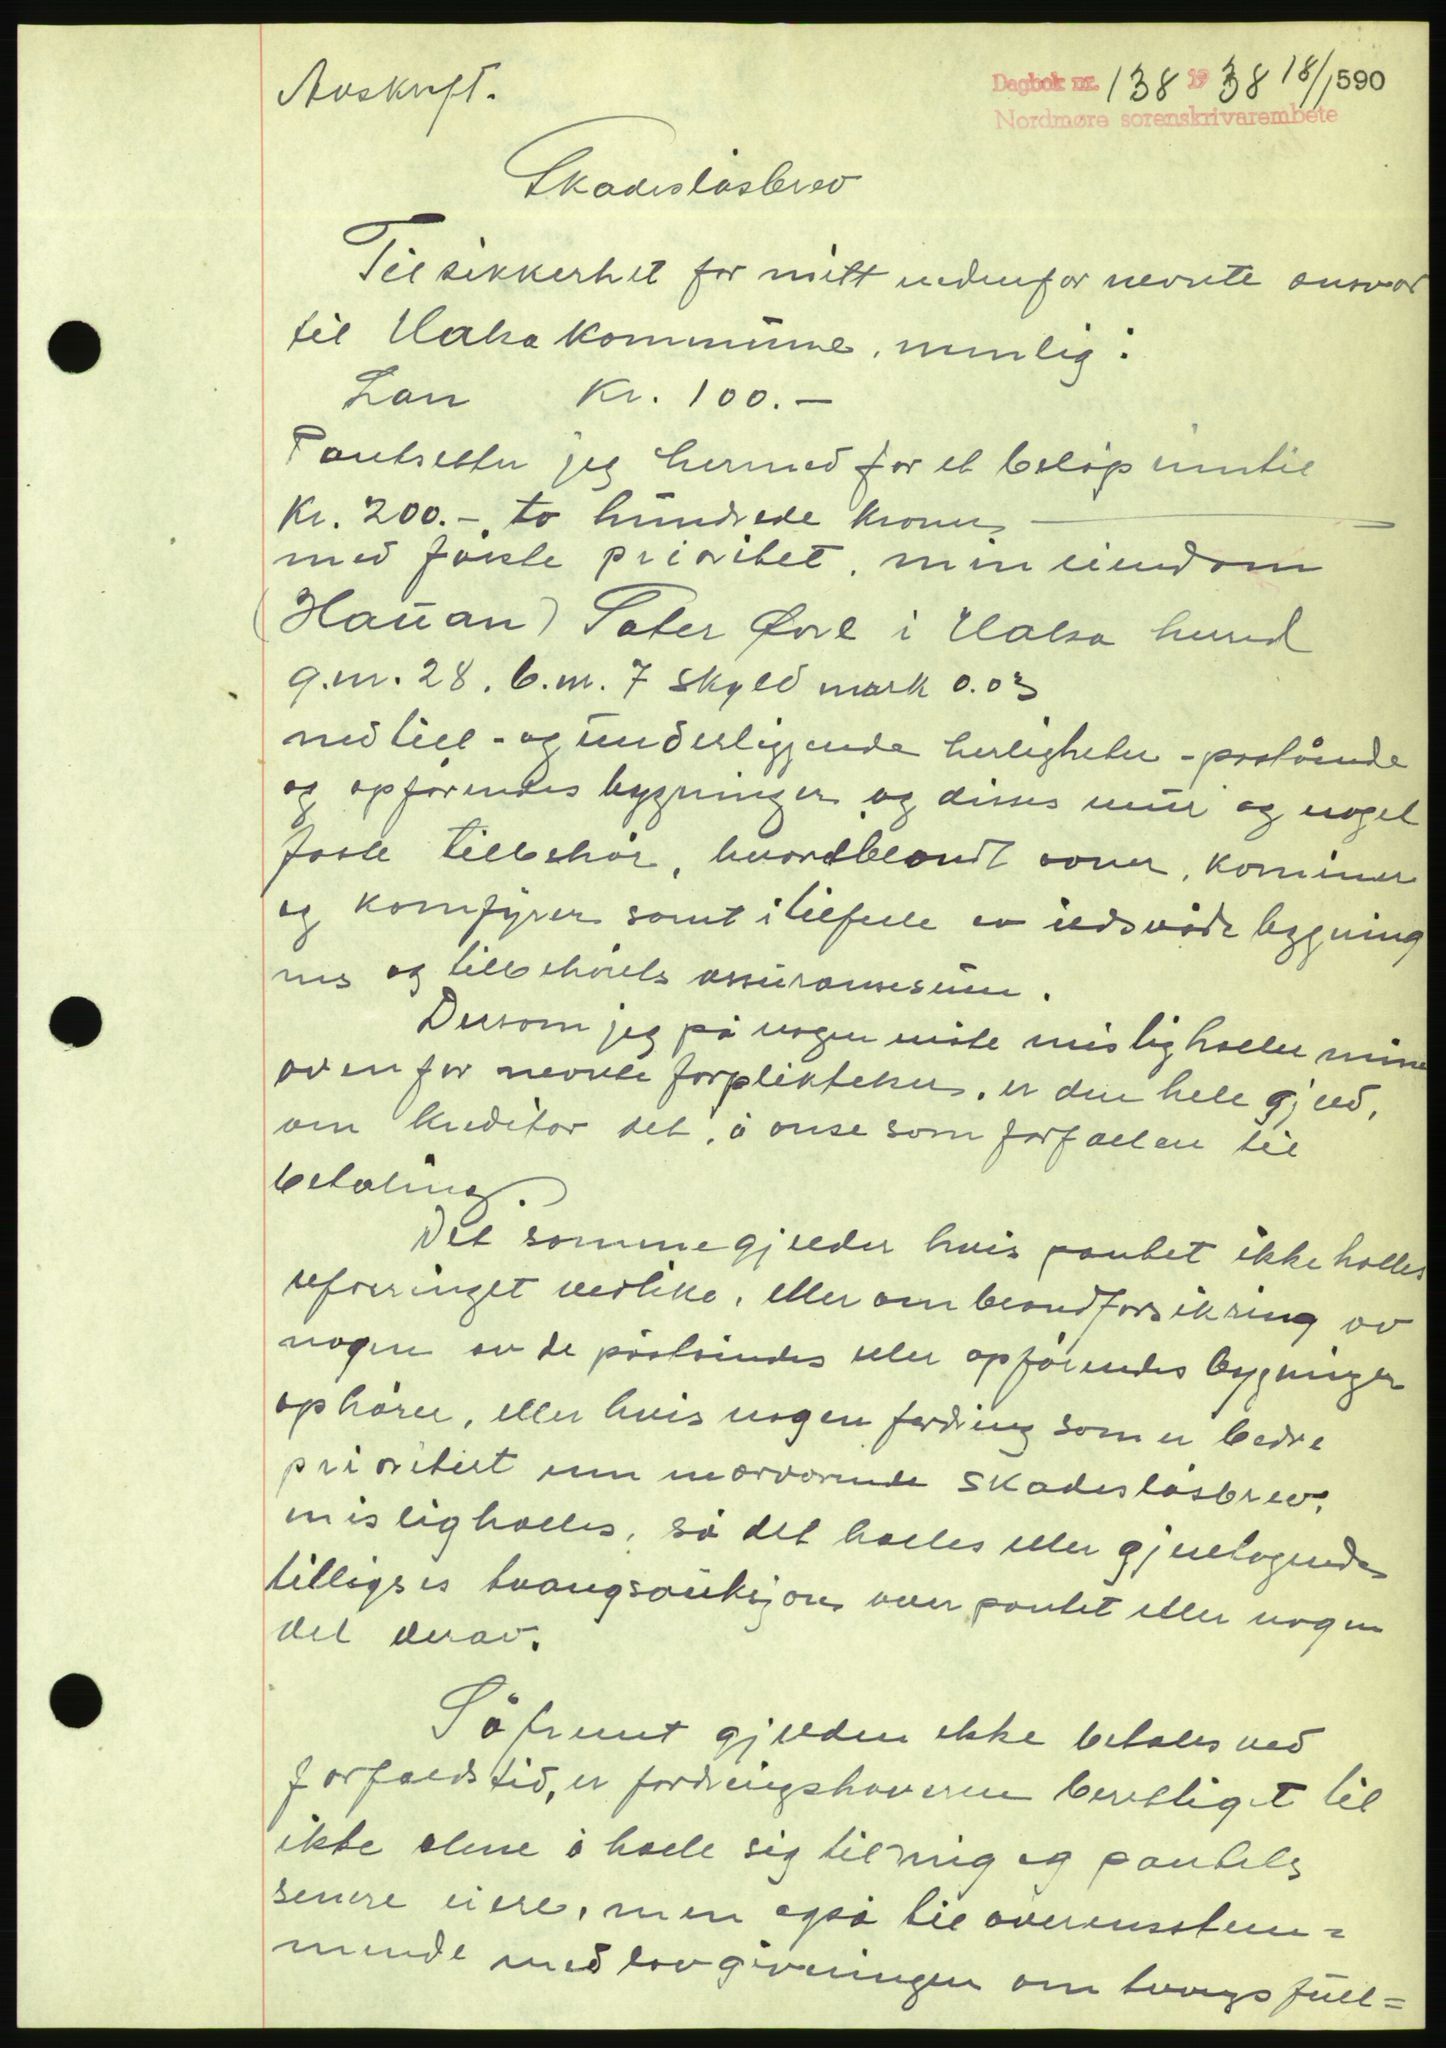 Avskrift.
Dagbok nr. 138 1938 18/1 590
Nordmøre sorenskrivarembete
Skadesløsbrev
Til sikkerhet for mitt nedenfor nevnte ansvar
til Halsa kommune, nemlig:
Lån Kr. 100.-
Pantsetter jeg hermed for et beløp inntil
Kr. 200.-, to hundrede kroner
med første prioritet, min eiendom
(Hauan) Sæter Øvre i Halsa herred
g.nr. 28. b.nr. 7 skyld mark 0.03
med till- og underliggende herligheter - påstående
og opførendes bygninger og disses mur og nagel
faste tillbehør, hvoriblandt ovner, kominer
og komfyrer samt i tilfelle av ildsvåde bygning
nes og tillbehørets assuransesum.
Dersom jeg på nogen måte misligholler mine
ovenfor nevnte forpliktelser, er den hele gjeld,
om kreditor det, å anse som forfallen til
betaling.
Det samme gjelder hvis pantet ikke holles
uforringet vedlike, eller om brandforsikring av
nogen av de påståendes eller opførendes bygninger
ophører, eller hvis nogen fordring som er bedre
prioritert enn nærværende skadesløsbrev,
misligholles, så det holles eller gjentagendes
tilligses tvangsauksjons over pantet eller nogen
del derav.
Såfremt gjelden ikke betales ved
forfaldstid, er fordringshaveren berettiget til
ikke alene å holle sig til mig og pantets
senere eiere, men også til overensstem=
mende med lovgivningen om tvangsfull=